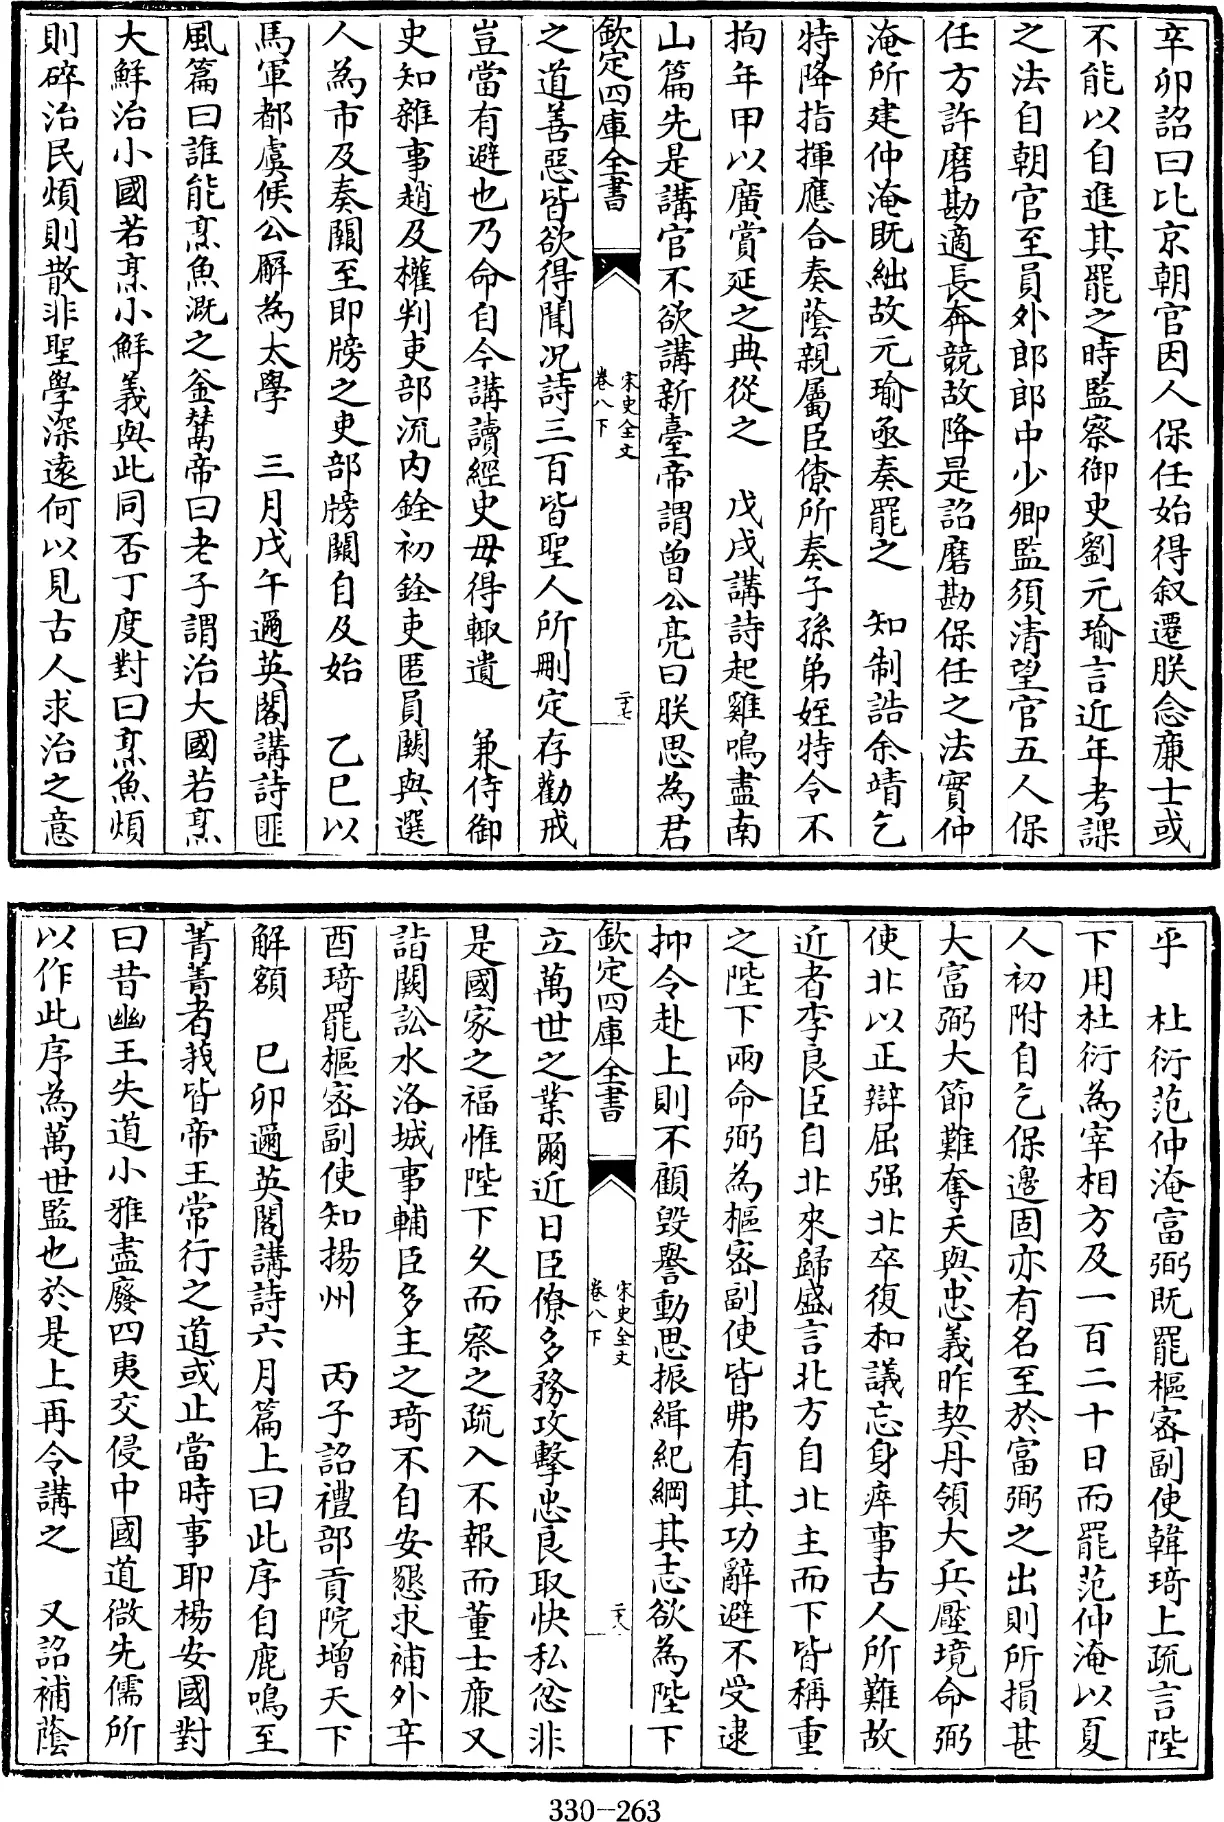 辛卯詔曰比京朝官因人保任始得叙遷朕念㢘士或
不能以自進其罷之時監察御史劉元瑜言近年考課
之法自朝官至員外郎郎中少卿監須清望官五人保
任方許磨勘適長奔競故降是詔磨勘保任之法實仲
淹所建仲淹既絀故元瑜亟奏罷之　知制誥余靖乞
特降指揮應合奏蔭親屬臣僚所奏子孫弟姪特令不
拘年甲以廣賞延之典從之　戊戌講詩起雞鳴盡南
山篇先是講官不欲講新臺帝謂曾公亮曰朕思為君
欽定四庫全書
宋史全文
卷八下
二十七
之道善惡皆欲得聞况詩三百皆聖人所刪定存勸戒
豈當有避也乃命自今講讀經史毋得輙遺　兼侍御
史知雜事趙及權判吏部流内銓初銓吏匿員闕與選
人為市及奏闕至即牓之吏部牓闕自及始　乙巳以
馬軍都虞候公廨為太學　三月戊午邇英閣講詩匪
風篇曰誰能烹魚溉之釡鬵帝曰老子謂治大國若烹
大鮮治小國若烹小鮮義與此同否丁度對曰烹魚煩
則碎治民煩則散非聖學深遠何以見古人求治之意
乎　杜衍范仲淹富弼既罷樞密副使韓琦上疏言陛
下用杜衍為宰相方及一百二十日而罷范仲淹以夏
人初附自乞保邊固亦有名至於富弼之出則所損甚
大富弼大節難奪天與忠義昨契丹領大兵壓境命弼
使北以正辯屈强北卒復和議忘身瘁事古人所難故
近者李良臣自北來歸盛言北方自北主而下皆稱重
之陛下兩命弼為樞密副使皆弗有其功辭避不受逮
抑令赴上則不顧毁譽動思振緝紀綱其志欲為陛下
欽定四庫全書
宋史全文
卷八下
二十八
立萬世之業爾近日臣僚多務攻擊忠良取快私忿非
是國家之福惟陛下乆而察之疏入不報而董士㢘又
詣闕訟水洛城事輔臣多主之琦不自安懇求補外辛
酉琦罷樞密副使知揚州　丙子詔禮部貢院增天下
解額　己卯邇英閣講詩六月篇上曰此序自鹿鳴至
菁菁者莪皆帝王常行之道或止當時事耶楊安國對
曰昔幽王失道小雅盡廢四夷交侵中國道微先儒所
以作此序為萬世監也於是上再令講之　又詔補蔭
330-263